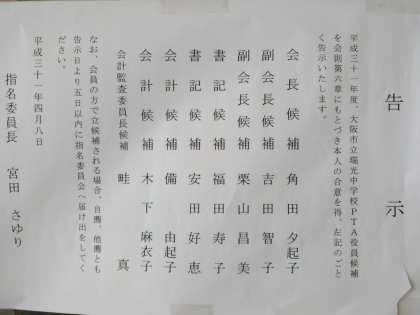 告示
平成三十一年度、大阪市立瑞光中学校PTA役員候補
を会則第六章にもとづき本人の合意を得、左記のごと
く告示いたします。
会長候補 角田夕起子
副会長候補 吉田智子
副会長候補 栗山昌美
書記候補 福田寿子
書記候補 安田好恵
会計候補 備由起子
会計候補 木下麻衣子
会計監査委員長候補 畦真
なお、会員の方で立候補される場合、自薦、他薦とも
告示日より五日以内に指名委員会へ届け出をしてく
ださい。
平成三十一年四月八日
指名委員長 宮田さゆり